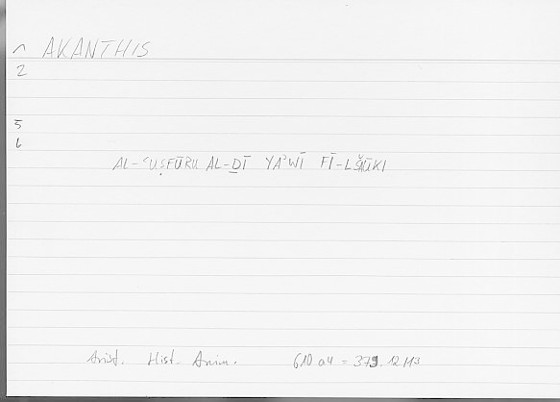 1 AKANTHIS
2
5
6
AL-ʿUṢFŪRU AL-ḎĪ YAʾWĪ FĪ-L ŠAUKI
Arist. Hist. Anim. 610 a4 = 379.12/13